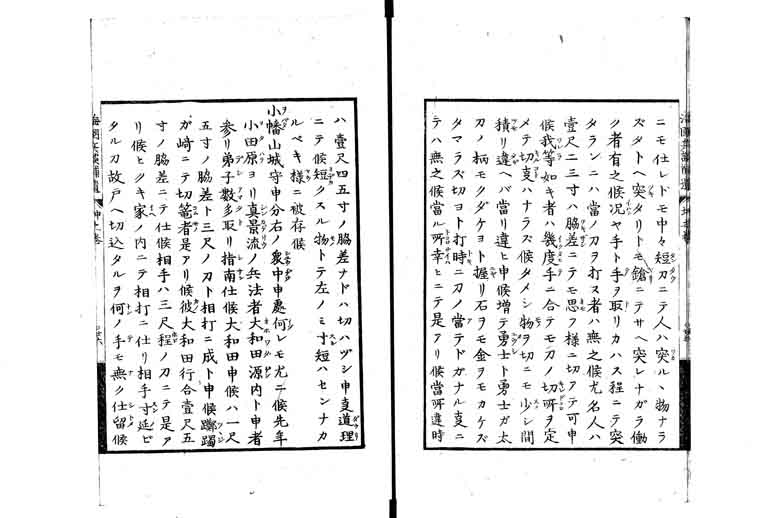 ニモ仕レドモ中々短刀ニテ人ハ突ルヽ物ナラ
ズタトヘ突タリトモ鎗ニテサヘ突レナガラ働
ク者有之候况ヤ手ト手ヲ取リカハス程ニテ突
タランニハ當ノ刀ヲ打ス者ハ無之候尤名人ハ
壹尺二三寸ハ脇差ニテモ思フ様ニ切アテ可申
候我等如キ者ハ幾度手ニ合テモ刀ノ切所ヲ定
メテ切支ハナラズ候タメシ物ヲ切ニモ少シ間
積リ違ヘバ當リ違ヒ申候増テ勇士ト勇士ガ太
刀ノ柄モクダケヨト握リ石ヲモ金ヲモカケズ
タマラズ切ヨト打時ニ刀ノ當テドガナル支ニ
テハ無之候當ル所幸ヒニテ是アリ候當所違時
ハ壹尺四五寸ノ脇差ナドハ切ハヅシ申支道理
ニテ候短クスル物トテ左ノミ寸短ハセンナカ
ルベキ様ニ被存候
小幡山城守申分右ノ衆中申處何レモ尤ニ候先年
小田原ヨリ真景流ノ兵法者大和田源内ト申者
参リ弟子數多取リ指南仕候大和田申候ハ一尺
五寸ノ脇差ト三尺ノ刀ト相打ニ成ト申候躑躅
ガ崎ニテ切篭者是アリ候彼大和田行合壹尺五
寸ノ脇差ニテ仕候相手ハ三尺程ノ刀ニテ是ア
リ候ヒクキ家ノ内ニテ相打ニ仕リ相手寸延ビ
タル刀故戸ヘ切込タルヲ何ノ手モ無ク仕留候